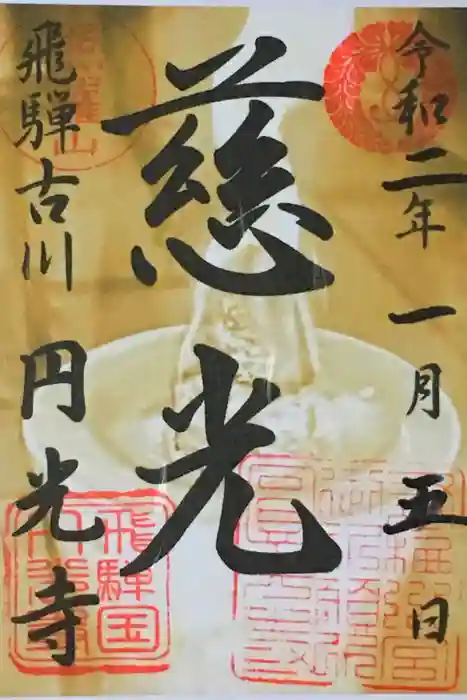 令和二年一月五日
慈光
飛騨古川 円光寺
飛騨国